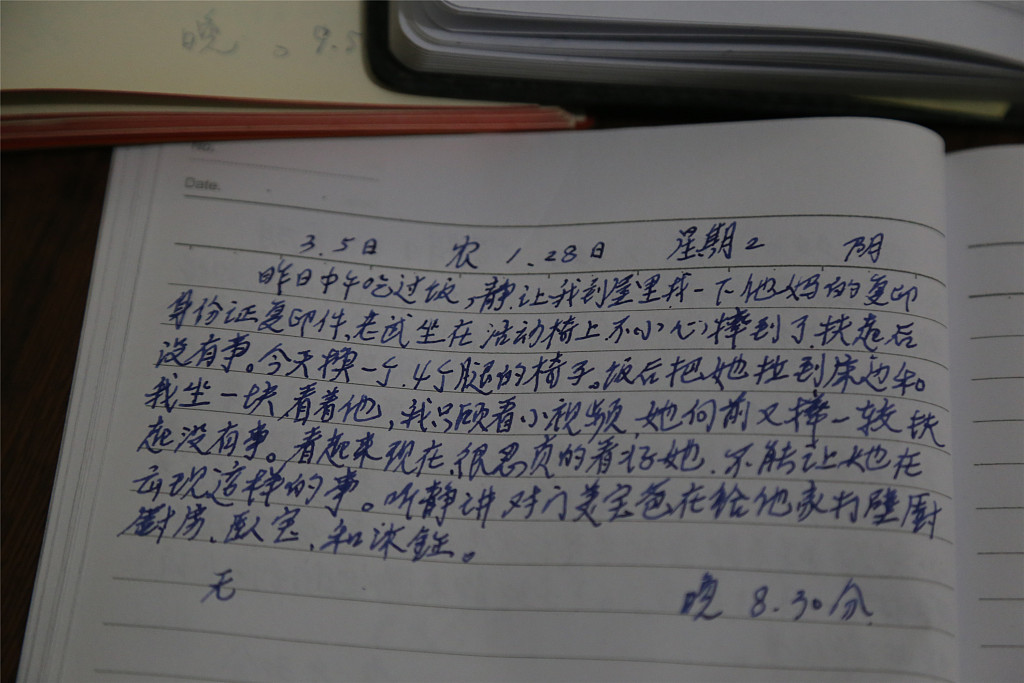 晚。9.5
No.
Date.
3.5日 农1.28日 星期2 阴
昨日中午吃过饭,静让我到屋里找一下他妈的复印
身份证复印件,老武坐在活动椅上不小心摔到了.扶起后
没有事。今天换一个.4个腿的椅子。饭后把她拉到床边和
我坐一块看着他,我只顾看小视频,她向前又摔一跤扶
起没有事。看起来现在.很思页的看好她.不能让她在
去现这样的事。听静讲对门美宝爸在给他家打壁厨
厨房、卧室、和床
无 晚8.30分